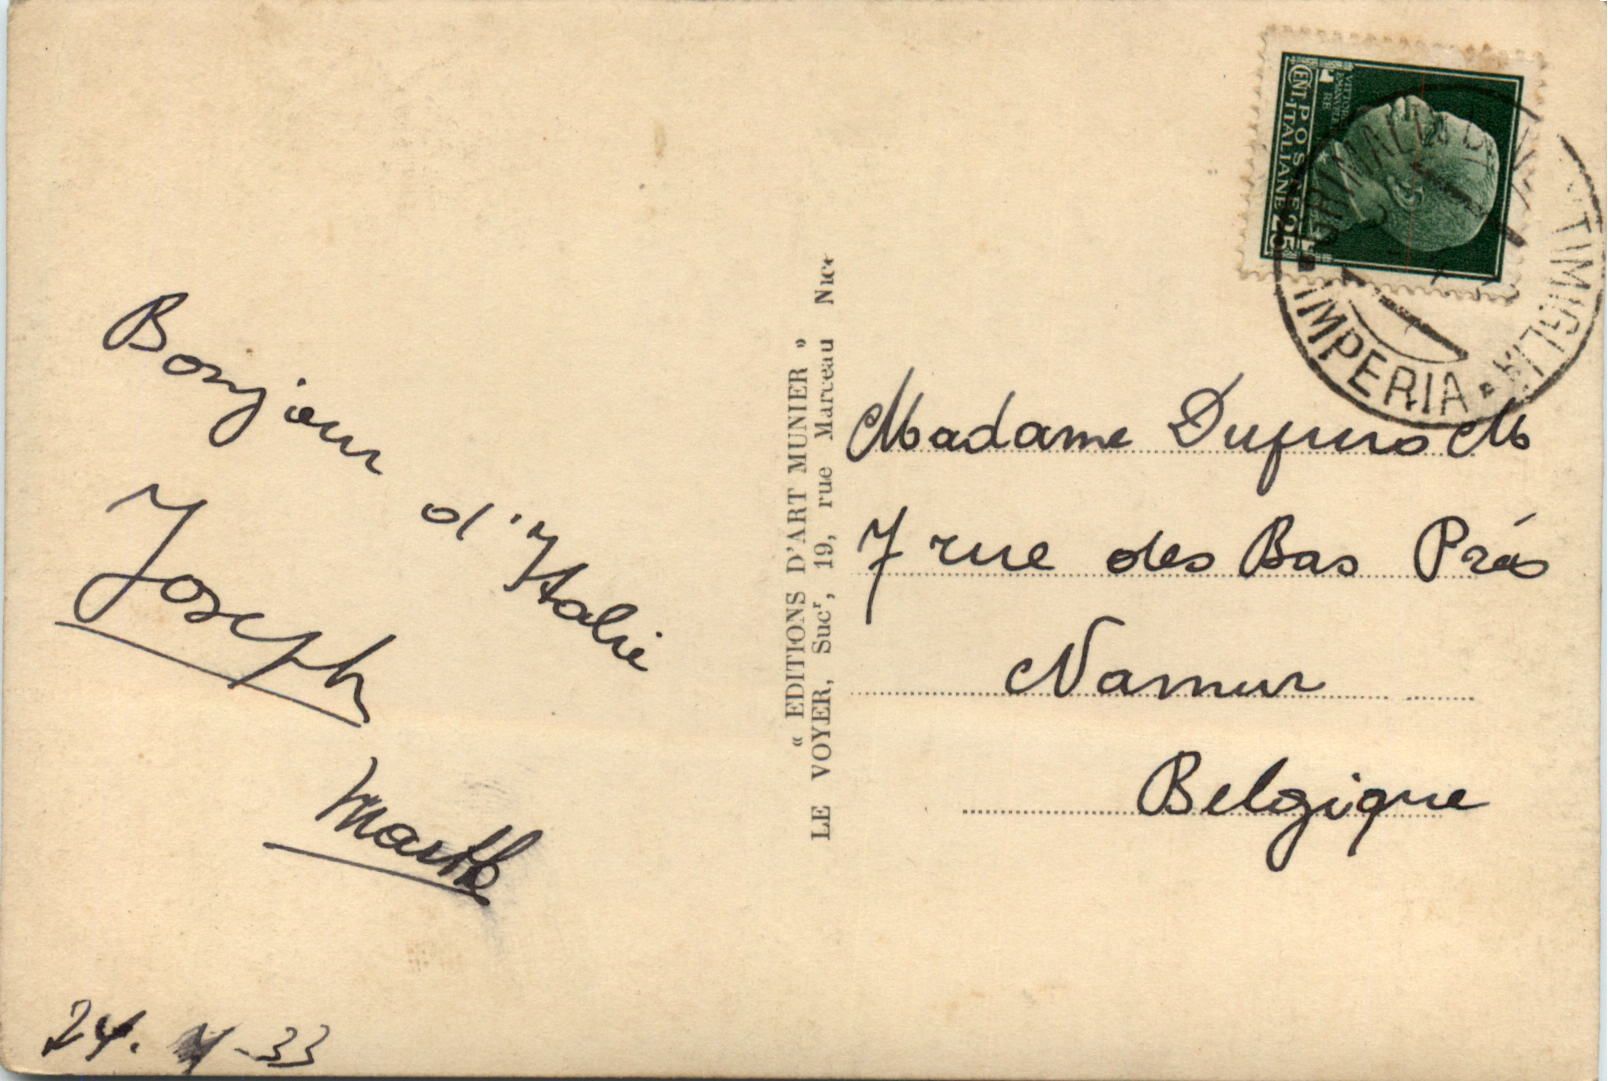 Bonjour
d'Italie
Joseph
Marthe
24. 4-33
« EDITIONS D'ART MUNIER »
LE VOYER, Sucr, 19, rue Marceau Nice
CENT. POSTE 25
ITALIANE
VITTORIO
EMANUELE
RE
GRIMALDI DI VENTIMIGLIA
IMPERIA
Madame Dufuro M
7 rue des Bas Prés
Namur
Belgique